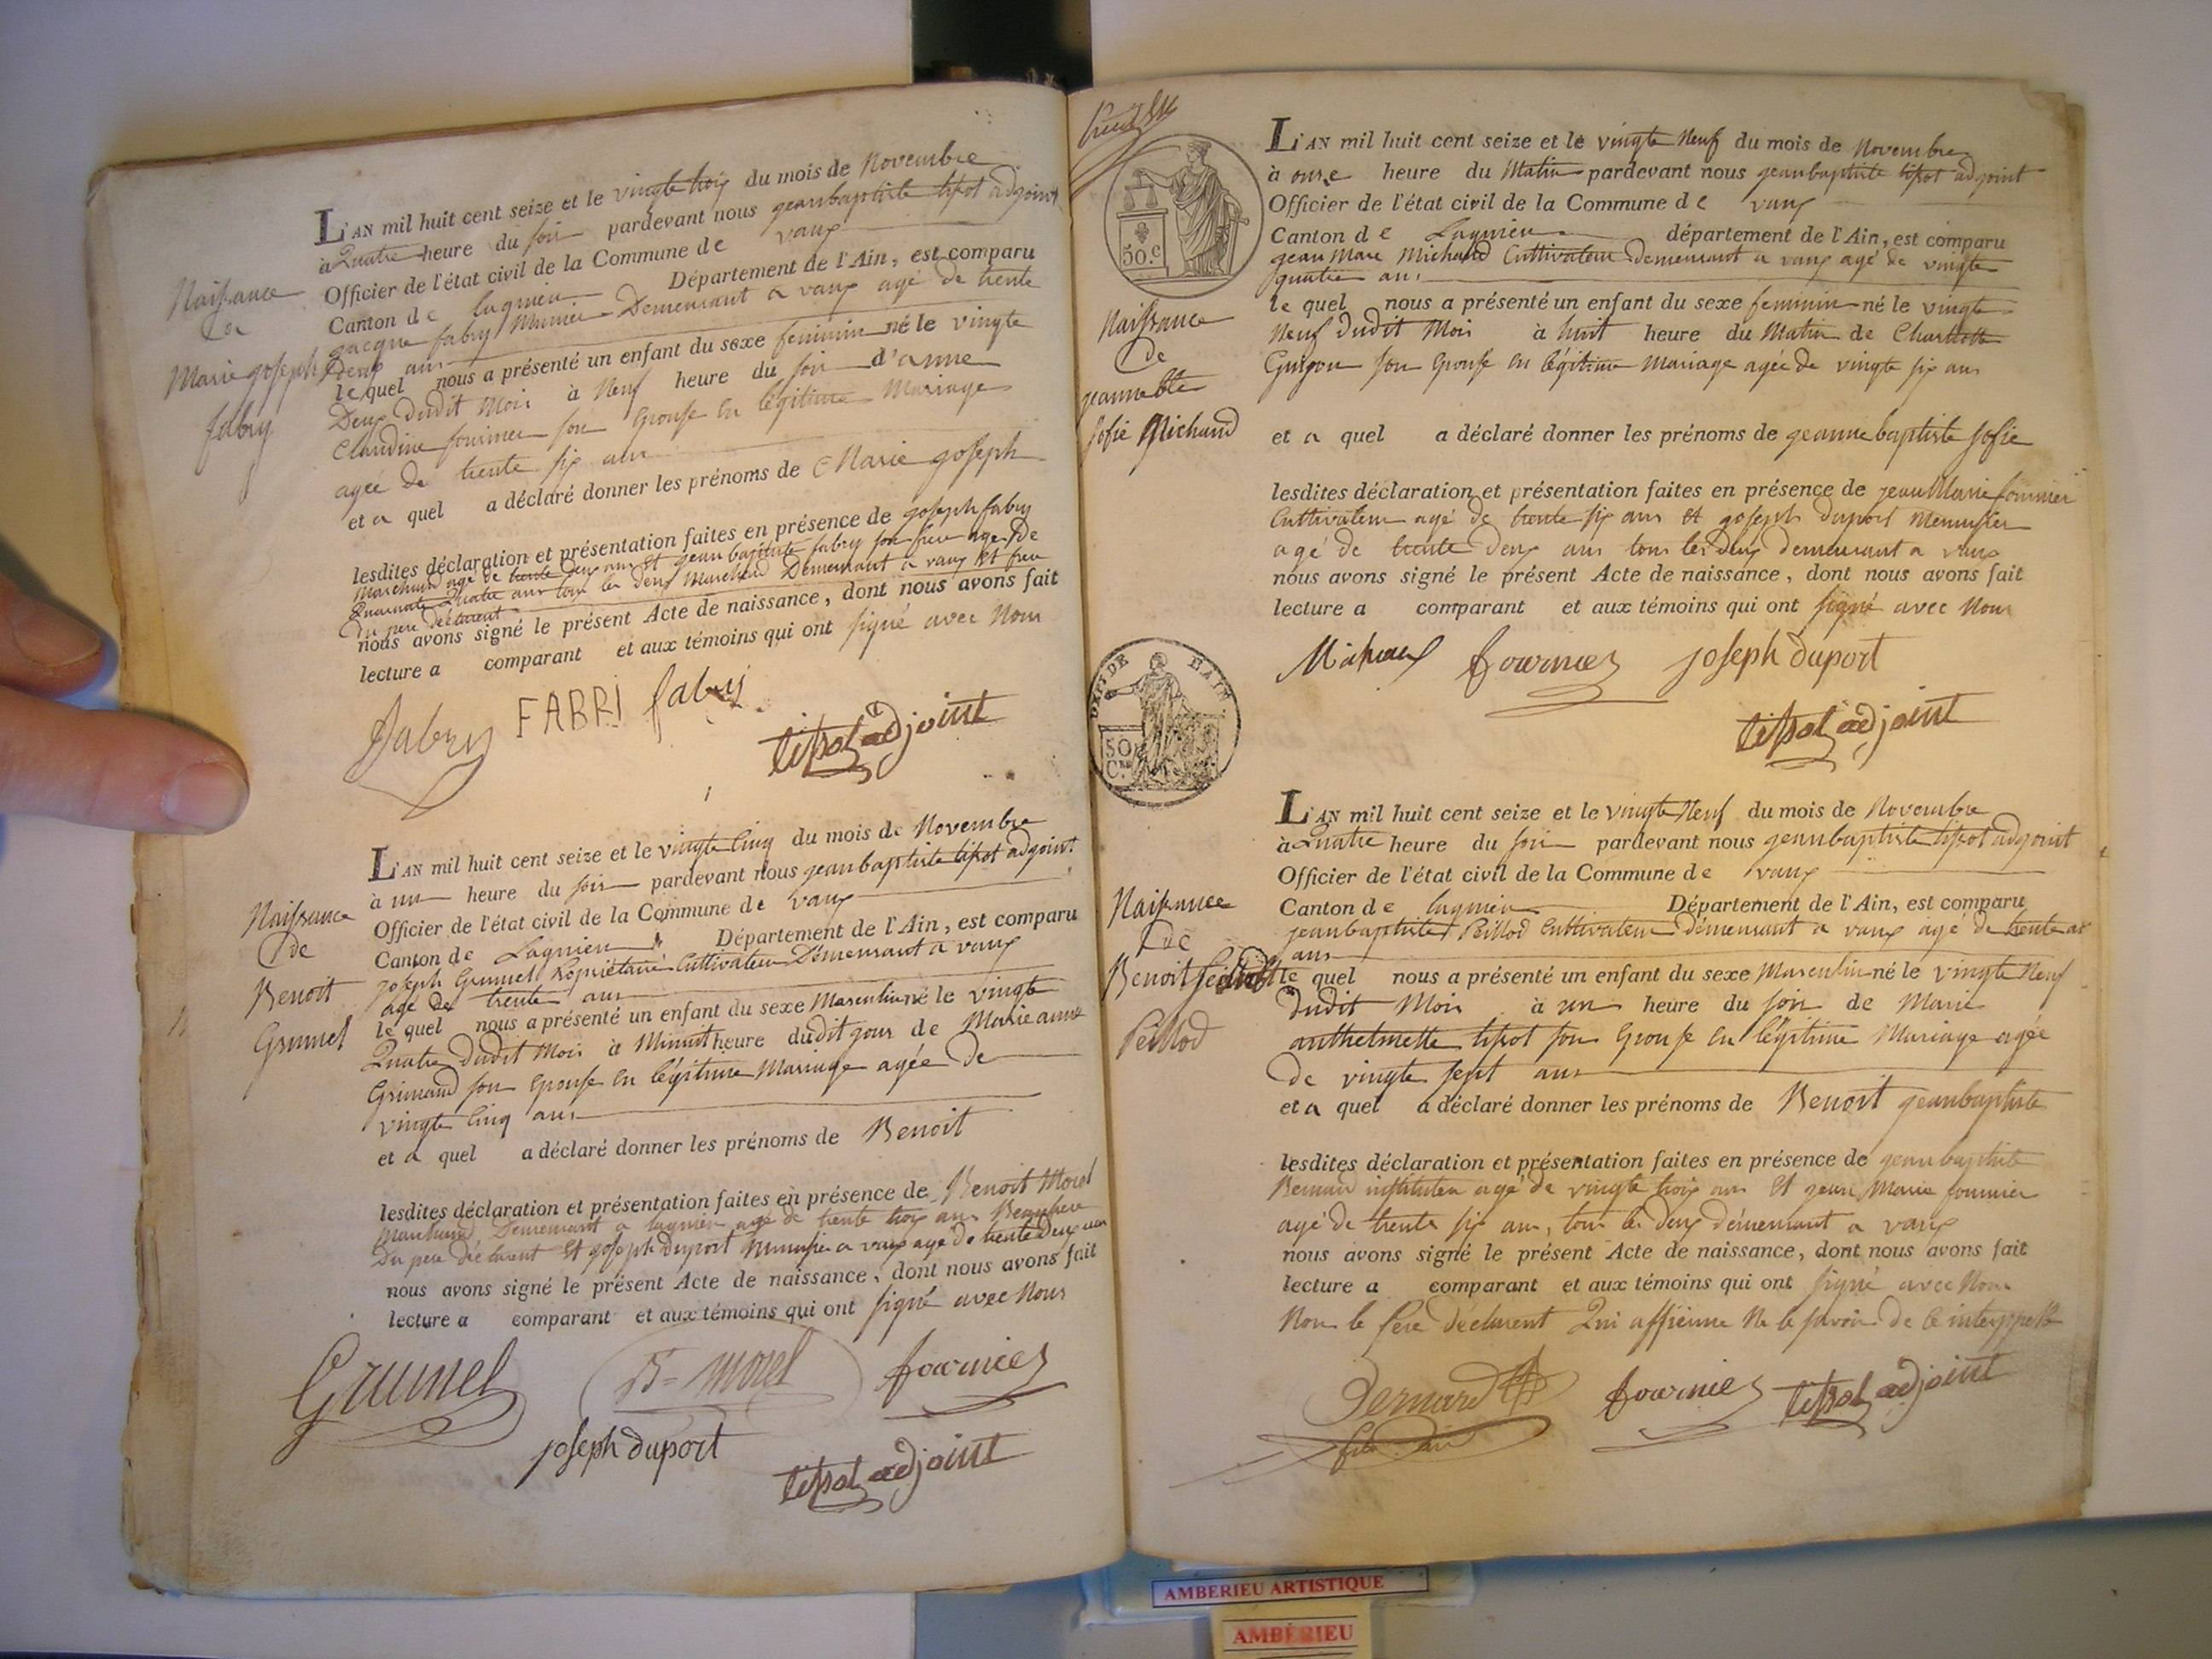 L'AN mil huit cent seize et le vingte trois du mois de Novembre
à Quatre heure du soir pardevant nous jeanbaptiste tissot adjoint
Officier de l'état civil de la Commune de vaux
Canton de lagnieu Département de l'Ain, est comparu
jacque fabry Demeurant a vaux agé de trente
deux ans
le quel nous a présenté un enfant du sexe feminin né le vingte
Deux dudit Mois à Neuf heure du soir d'anne
Claudine fournier son Epouse En légitime Mariage
agée de trente six ans
et a quel a déclaré donner les prénoms de Marie joseph
lesdites déclaration et présentation faites en présence de joseph fabry
Marchand agé de trente deux ans et jean baptiste fabry son frere agé de
Quarante Quatre ans tous les deux Marchand Demeurant a vaux et frere
du pere déclarent
nous avons signé le présent Acte de naissance, dont nous avons fait
lecture a comparant et aux témoins qui ont signé avec Nous
Naissance
de
Marie joseph
fabry
fabry FABRI fabri
tissot adjoint
L'AN mil huit cent seize et le vingte Cinq du mois de Novembre
à un heure du soir pardevant nous jeanbaptiste tissot adjoint
Officier de l'état civil de la Commune de vaux
Canton de Lagnieu Département de l'Ain, est comparu
joseph Grumel Propriétaire Cultivateur Démeurant a vaux
agé de trente ans
le quel nous a présenté un enfant du sexe Masculin né le vingte
Quatre dudit Mois à Minuit heure dudit jour de Marie anne
Grimand son Epouse En légitime Mariage agée de
vingte Cinq ans
et a quel a déclaré donner les prénoms de Benoit
lesdites déclaration et présentation faites en présence de Benoit Morel
Marchand Demeurant a lagnieu agé de trente trois ans Beaufrere
Du pere déclarent Et joseph Duport Menusier a vaux agé de trente Deux ans
nous avons signé le présent Acte de naissance, dont nous avons fait
lecture a comparant et aux témoins qui ont signé avec Nous
Naissance
de
Benoit
Grumel
Grumel B= morel fournier
joseph duport
tissot adjoint
50.C
L'AN mil huit cent seize et le vingte Neuf du mois de Novembre
à onze heure du Matin pardevant nous jeanbaptiste tissot adjoint
Officier de l'état civil de la Commune de vaux
Canton de Lagnieu département de l'Ain, est comparu
jean Marc Michaud Cultivateur demeurant a vaux agé de vingte
quatre ans
le quel nous a présenté un enfant du sexe feminin né le vingte
Neuf dudit Mois à huit heure du Matin de Charlotte
Guigou son Epouse En légitime Mariage agée de vingte six ans
et a quel a déclaré donner les prénoms de jeanne baptiste sofie
lesdites déclaration et présentation faites en présence de jean Marie fournier
Cultivateur agé de trente six ans et joseph duport Menusier
agé de trente deux ans tous les deux demeurant a vaux
nous avons signé le présent Acte de naissance, dont nous avons fait
lecture a comparant et aux témoins qui ont signé avec Nous
Naissance
de
jeannette
sofie Michaud
fournier joseph duport
tissot adjoint
DEPT DE L'AIN
50
L'AN mil huit cent seize et le vingte Neuf du mois de Novembre
à Quatre heure du soir pardevant nous jeanbaptiste tissot adjoint
Officier de l'état civil de la Commune de vaux
Canton de lagnieu Département de l'Ain, est comparu
jeanbaptiste Peillod Cultivateur démeurant a vaux agé de trente
ans
le quel nous a présenté un enfant du sexe Masculin né le vingte Neuf
dudit Mois à un heure du soir de Marie
anthelmette tissot son Epouse En légitime Mariage agée
de vingte sept ans
et a quel a déclaré donner les prénoms de Benoit jeanbaptiste
lesdites déclaration et présentation faites en présence de jean baptiste
Bernard instituteur agé de vingte trois ans Et jean Marie fournier
agé de trente six ans, tous les deux démeurant a vaux
nous avons signé le présent Acte de naissance, dont nous avons fait
lecture a comparant et aux témoins qui ont signé avec Nous
Non le Pere déclarent Qui affirme Ne le savoir de Ce interppellé
Naissance
de
Benoit
Peillod
Bernard fournier tissot adjoint
AMBERIEU ARTISTIQUE
AMBÉRIEU